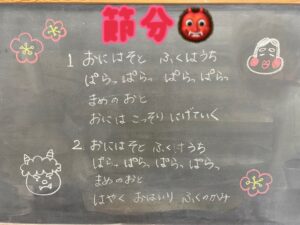 節分
1 おにはそと ふくはうち
ぱらっぱらっ ぱらっぱらっ
まめのおと
おには こっそり にげていく
2. おにはそと ふくはうち
ぱらっぱらっ ぱらっぱらっ
まめのおと
はやく おはいり ふくのかみ